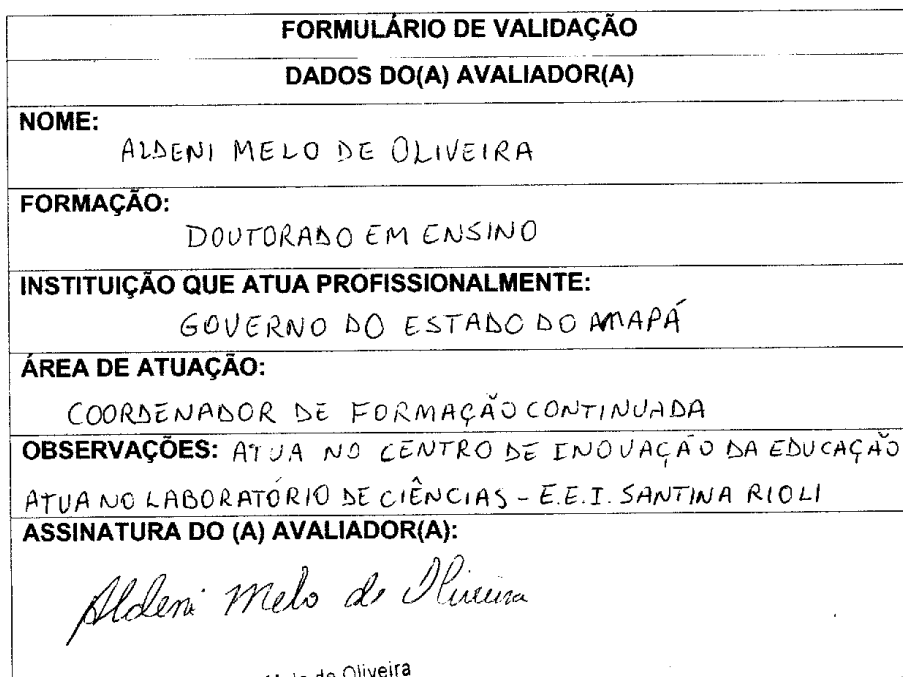 FORMULÁRIO DE VALIDAÇÃO
DADOS DO(A) AVALIADOR(A)
NOME:
ALDENI MELO DE OLIVEIRA
FORMAÇÃO:
DOUTORADO EM ENSINO
INSTITUIÇÃO QUE ATUA PROFISSIONALMENTE:
GOVERNO DO ESTADO DO AMAPÁ
ÁREA DE ATUAÇÃO:
COORDENADOR DE FORMAÇÃO CONTINUADA
OBSERVAÇÕES: ATUA NO CENTRO DE INOVAÇÃO DA EDUCAÇÃO
ATUA NO LABORATÓRIO DE CIÊNCIAS - E.E.I. SANTINA RIOLI
ASSINATURA DO (A) AVALIADOR(A):
Aldeni Melo de Oliveira
de Oliveira